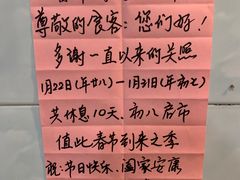 尊敬的食客:您们好!
多谢一直以来的关照
1月22日(年廿八)一1月31日(年初七)
共休息10天、初八启市
值此春节到来之季
祝:节日快乐、阖家安康